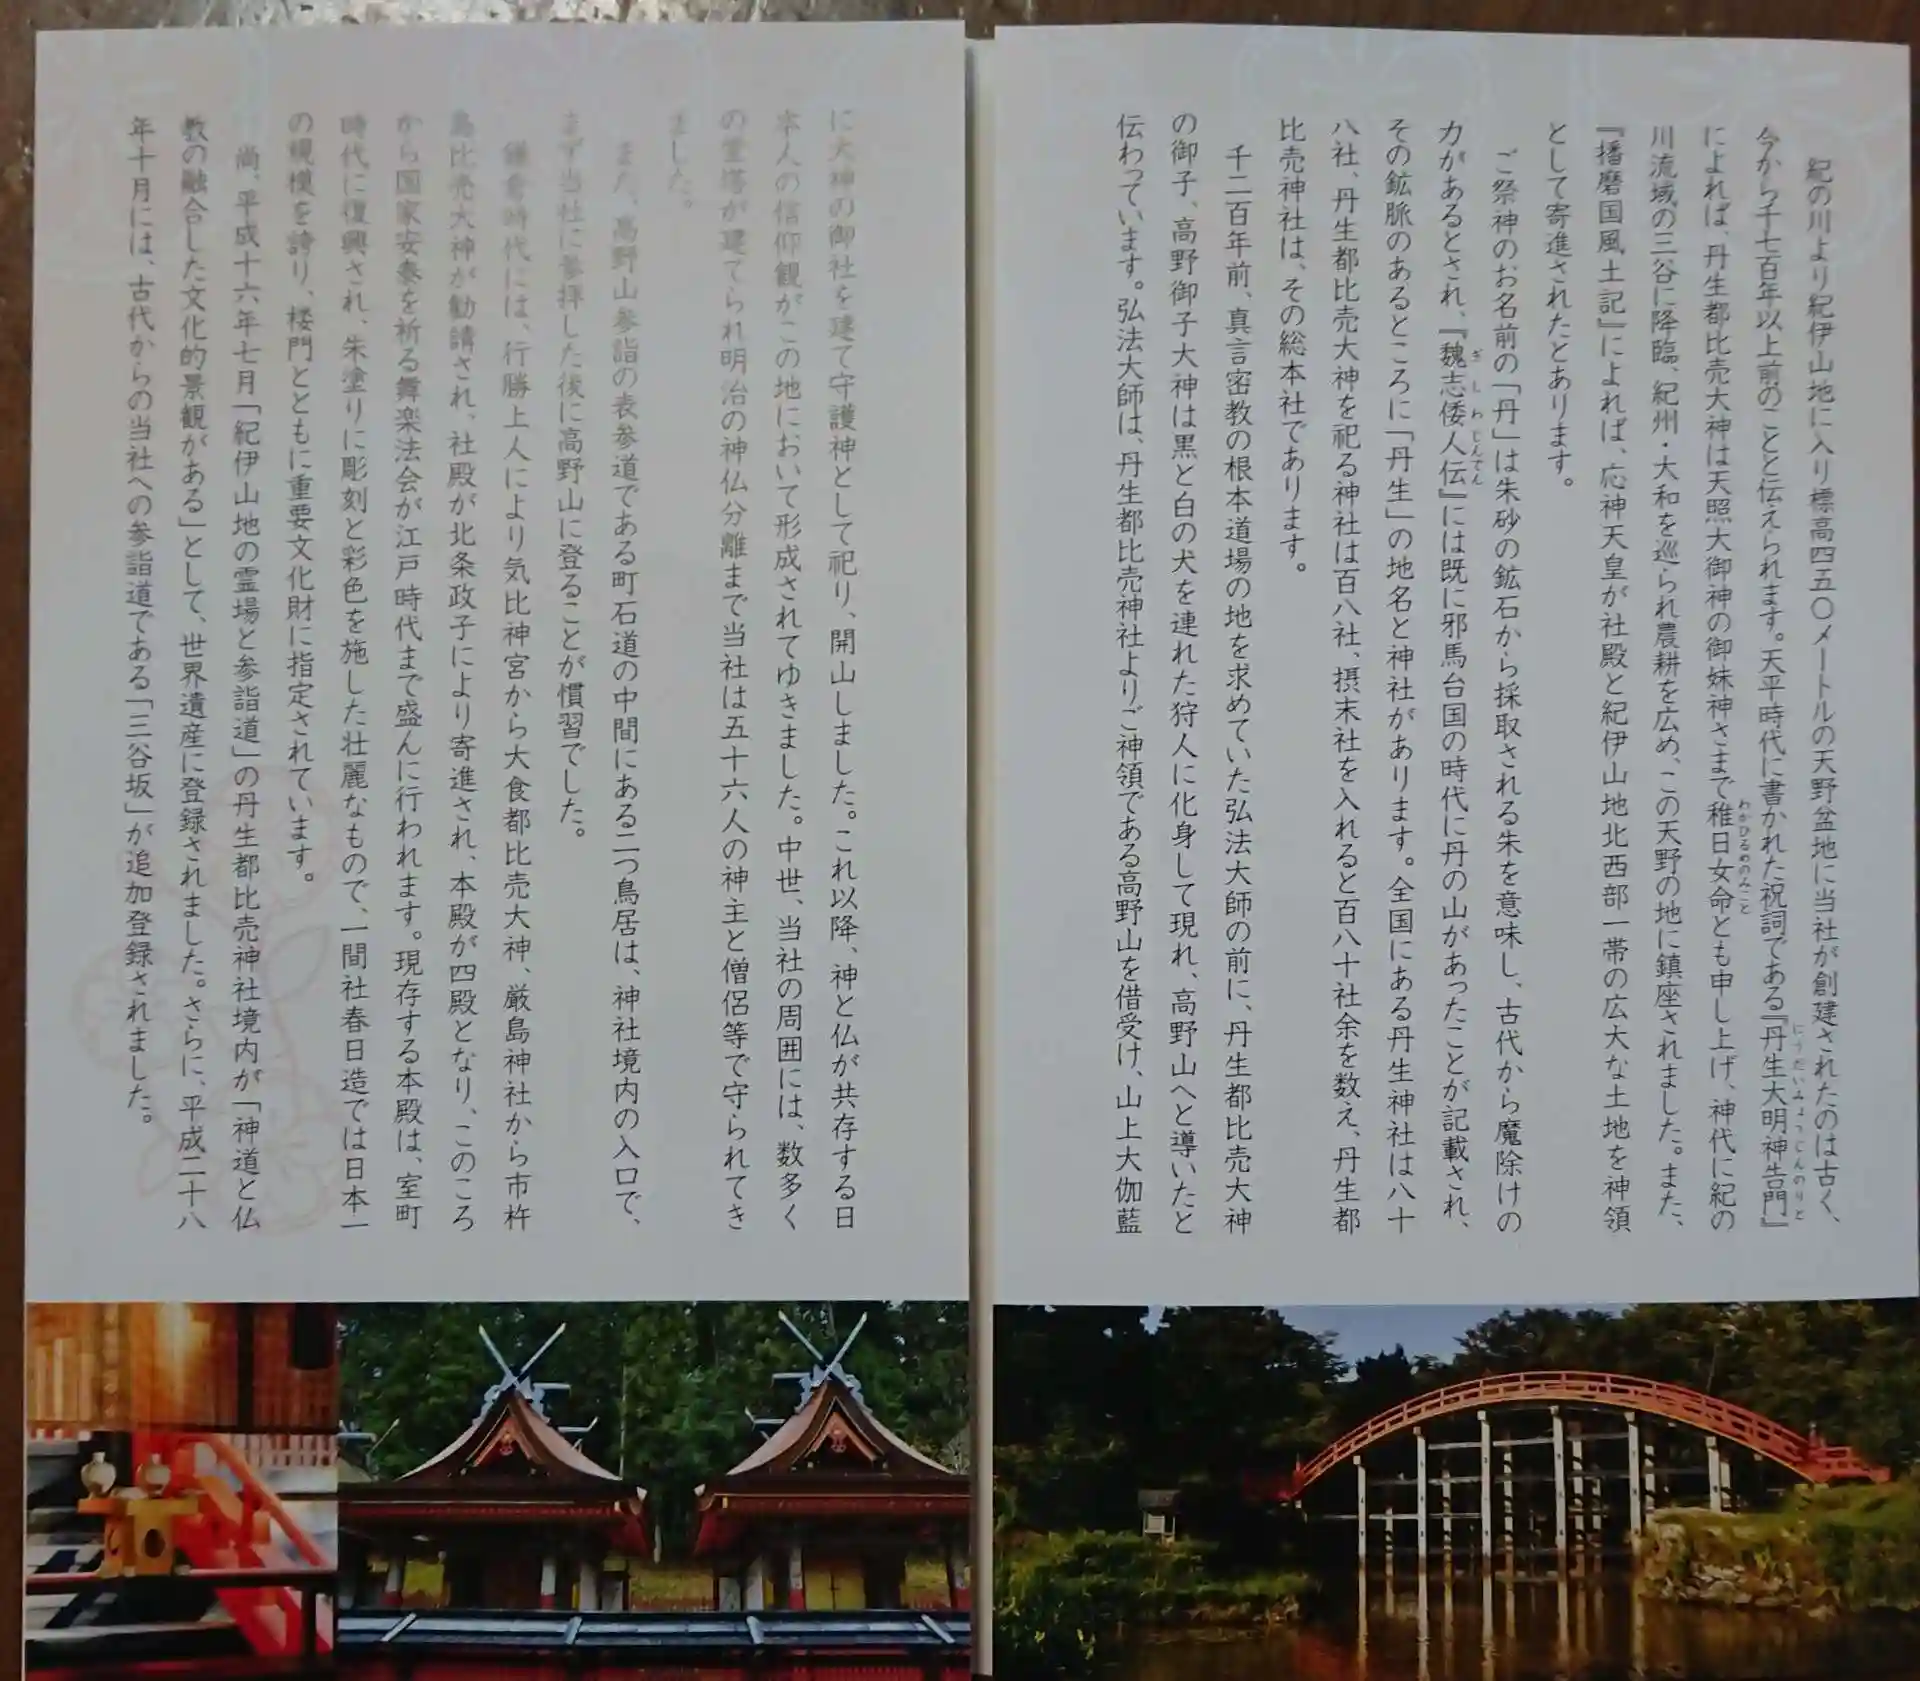 紀の川より紀伊山地に入り標高四五〇メートルの天野盆地に当社が創建されたのは古く、
今から千七百年以上前のことと伝えられます。天平時代に書かれた祝詞である『丹生大明神告門』
にうだいみょうじんのりと
によれば、丹生都比売大神は天照大御神の御妹神さまで稚日女命とも申し上げ、神代に紀の
わかひるめのみこと
川流域の三谷に降臨、紀州・大和を巡られ農耕を広め、この天野の地に鎮座されました。また、
『播磨国風土記』によれば、応神天皇が社殿と紀伊山地北西部一帯の広大な土地を神領
として寄進されたとあります。
ご祭神のお名前の「丹」は朱砂の鉱石から採取される朱を意味し、古代から魔除けの
力があるとされ、『魏志倭人伝』には既に邪馬台国の時代に丹の山があったことが記載され、
ぎしわじんでん
その鉱脈のあるところに「丹生」の地名と神社があります。全国にある丹生神社は八十
八社、丹生都比売大神を祀る神社は百八社、摂末社を入れると百八十社余を数え、丹生都
比売神社は、その総本社であります。
千二百年前、真言密教の根本道場の地を求めていた弘法大師の前に、丹生都比売大神
の御子、高野御子大神は黒と白の犬を連れた狩人に化身して現れ、高野山へと導いたと
伝わっています。弘法大師は、丹生都比売神社よりご神領である高野山を借受け、山上大伽藍
に大神の御社を建て守護神として祀り、開山しました。これ以降、神と仏が共存する日
本人の信仰観がこの地において形成されてゆきました。中世、当社の周囲には、数多く
の堂塔が建てられ明治の神仏分離まで当社は五十六人の神主と僧侶等で守られてき
ました。
また、高野山参詣の表参道である町石道の中間にある二つ鳥居は、神社境内の入口で、
まず当社に参拝した後に高野山に登ることが慣習でした。
鎌倉時代には、行勝上人により気比神宮から大食都比売大神、厳島神社から市杵
島比売大神が勧請され、社殿が北条政子により寄進され、本殿が四殿となり、このころ
から国家安泰を祈る舞楽法会が江戸時代まで盛んに行われます。現存する本殿は、室町
時代に復興され、朱塗りに彫刻と彩色を施した壮麗なもので、一間社春日造では日本一
の規模を誇り、楼門とともに重要文化財に指定されています。
尚、平成十六年七月「紀伊山地の霊場と参詣道」の丹生都比売神社境内が「神道と仏
教の融合した文化的景観がある」として、世界遺産に登録されました。さらに、平成二十八
年十月には、古代からの当社への参詣道である「三谷坂」が追加登録されました。